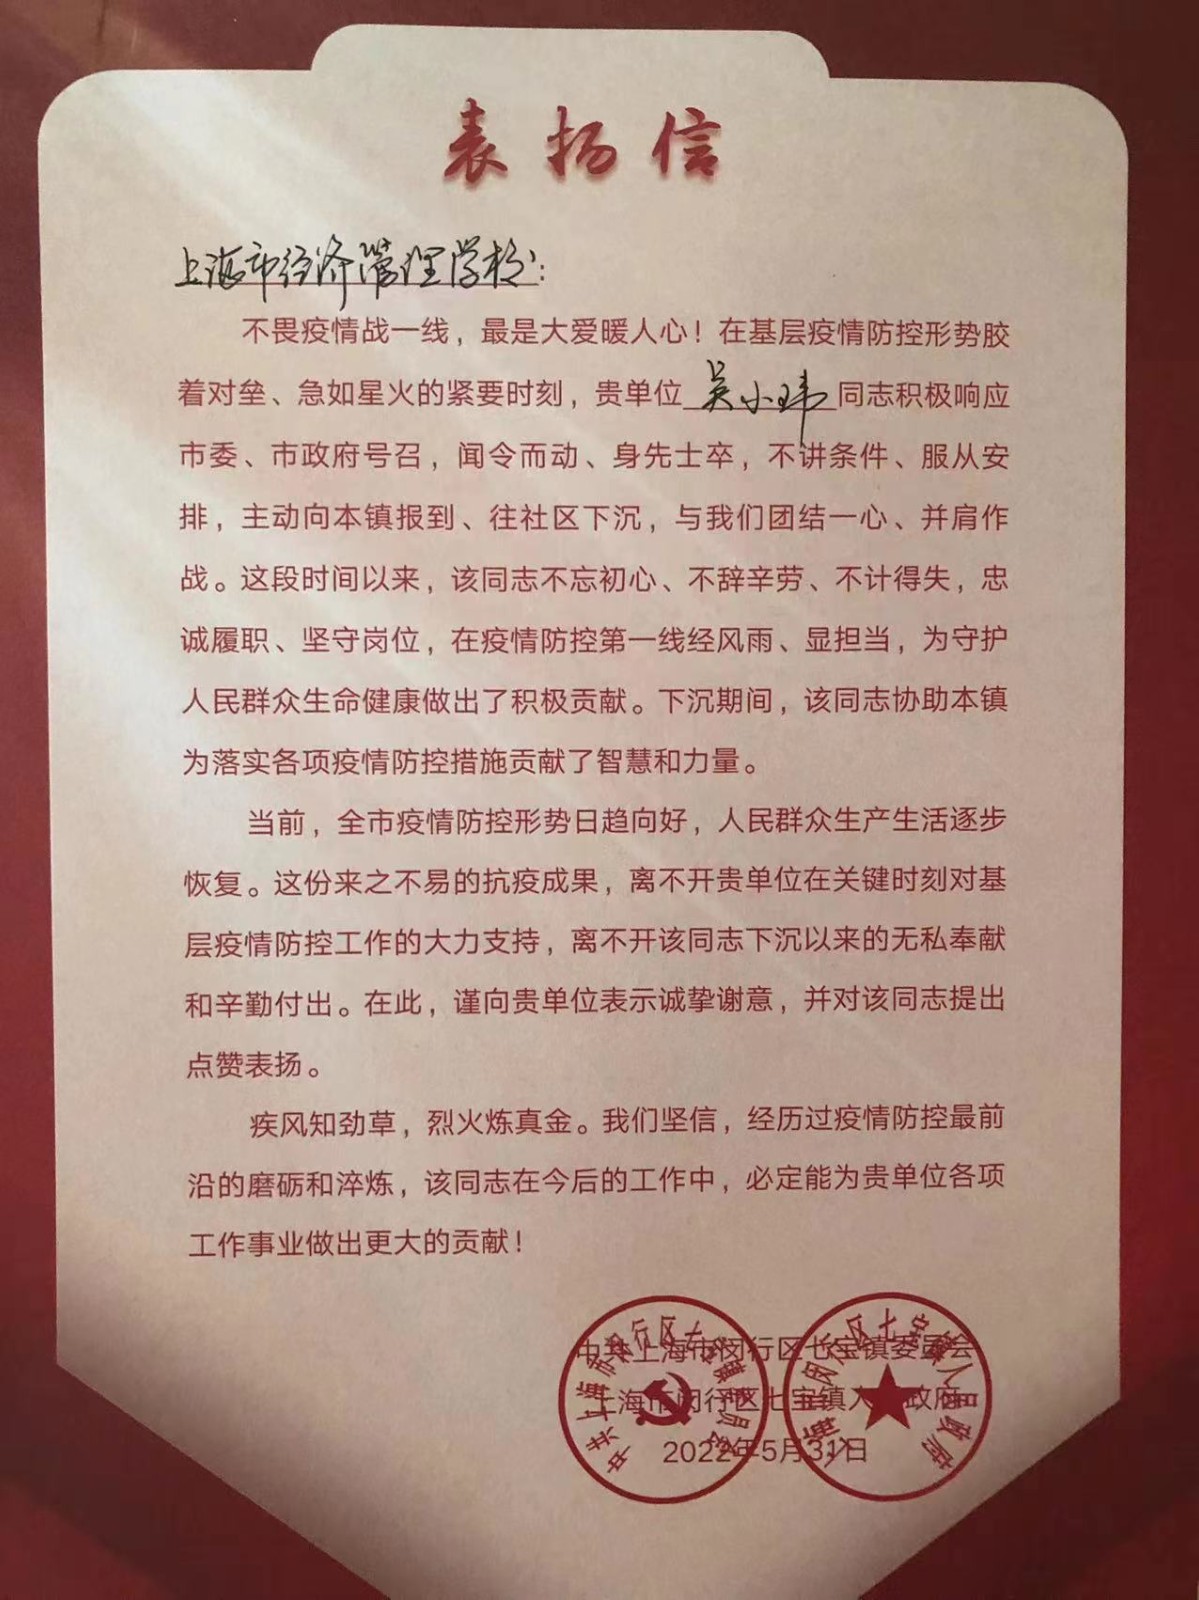 表扬信
上海市经济管理学校：
不畏疫情战一线，最是大爱暖人心！在基层疫情防控形势胶
着对垒、急如星火的紧要时刻，贵单位吴小玮同志积极响应
市委、市政府号召，闻令而动、身先士卒，不讲条件、服从安
排，主动向本镇报到、往社区下沉，与我们团结一心、并肩作
战。这段时间以来，该同志不忘初心、不辞辛劳、不计得失，忠
诚履职、坚守岗位，在疫情防控第一线经风雨、显担当，为守护
人民群众生命健康做出了积极贡献。下沉期间，该同志协助本镇
为落实各项疫情防控措施贡献了智慧和力量。
当前，全市疫情防控形势日趋向好，人民群众生产生活逐步
恢复。这份来之不易的抗疫成果，离不开贵单位在关键时刻对基
层疫情防控工作的大力支持，离不开该同志下沉以来的无私奉献
和辛勤付出。在此，谨向贵单位表示诚挚谢意，并对该同志提出
点赞表扬。
疾风知劲草，烈火炼真金。我们坚信，经历过疫情防控最前
沿的磨砺和淬炼，该同志在今后的工作中，必定能为贵单位各项
工作事业做出更大的贡献！
中共上海市闵行区七宝镇委员会
上海市闵行区七宝镇人民政府
2022年5月31日
中共上海市闵行区七宝镇委员会
上海市闵行区七宝镇人民政府